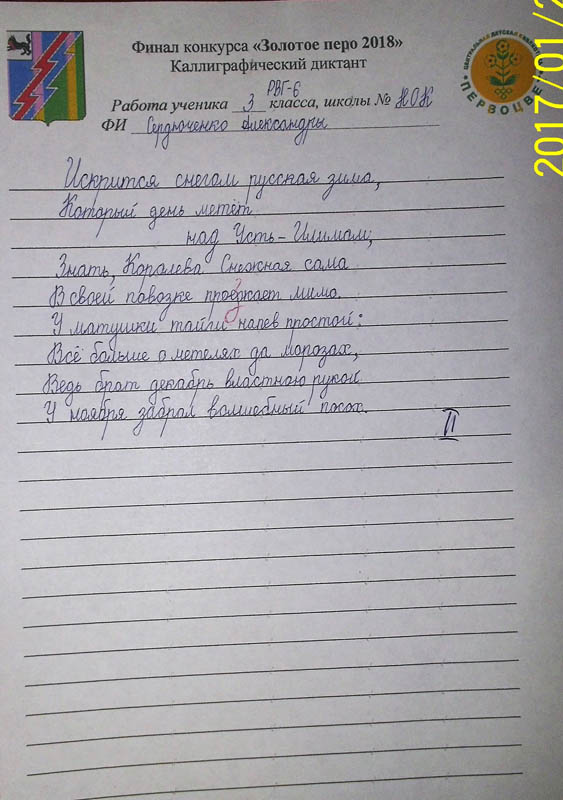 Финал конкурса «Золотое перо 2018»
Каллиграфический диктант
РВГ-6
Работа ученика 3 класса, школы № НОК
ФИ Сердюченко Александры
ЦЕНТРАЛЬНАЯ ДЕТСКАЯ
ПЕРВОЦВЕТ
2017/01/2
Искрится снегом русская зима,
Который день метёт
над Усть-Илимом,
Знать, Королева Снежная сама
В своей повозке проезжает мимо.
У матушки тайги напев простой:
Всё больше о метелях да морозах,
Ведь брат декабрь властною рукой
У ноября забрал волшебный посох.
II